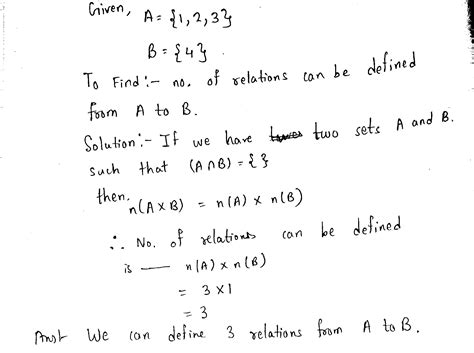 Given, A = {1, 2, 3}
B = {4}.
To Find :- no. of relations can be defined
from A to B.
Solution :- If we have two sets A and B.
such that (A ∩ B) = { }
then,
n(A × B) = n(A) × n(B)
∴ No. of relations can be defined
is — n(A) × n(B)
= 3 × 1
= 3
Ans+ We can define 3 relations from A to B.